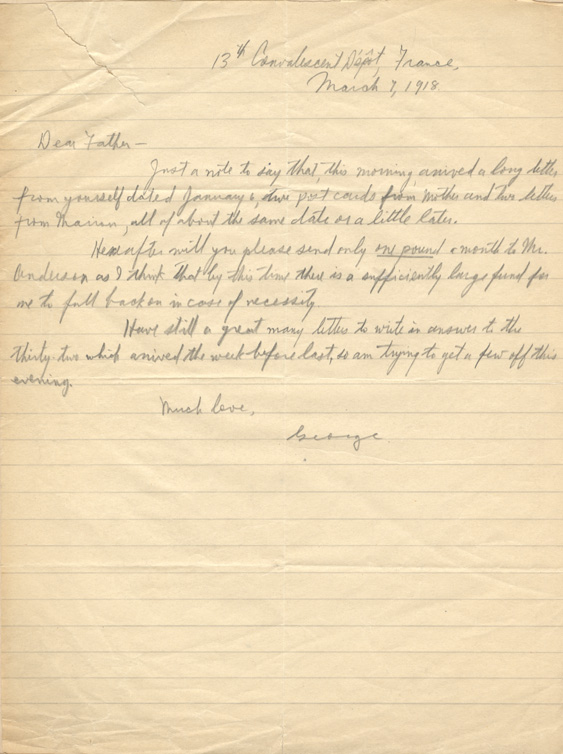 13th Convalescent Dépôt, France,
March 7, 1918.
Dear Father —
Just a note to say that, this morning, arived a long letter
from yourself dated January 6, two post cards from Mother and two letters
from Marion, all of about the same date or a little later.
Hereafter will you please send only one pound a month to Mr.
Anderson as I think that by this time there is a sufficiently large fund for
me to fall back on in case of necessity.
Have still a great many letters to write in answer to the
thirty-two which arived the week before last, so am trying to get a few off this
evening.
Much love,
George.